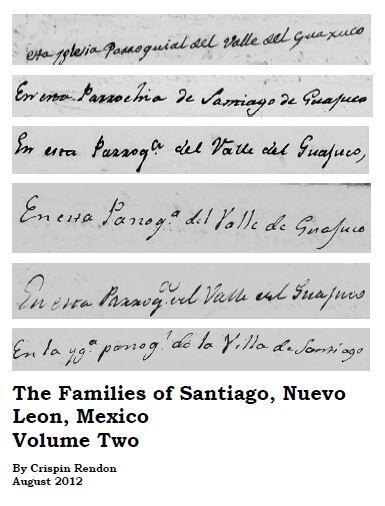 esta yglesia Parroquial del Valle del Guaxuco
En esta Parrochia de Santiago de Guajuco
En esta Parroq.ª del Valle del Guajuco,
En esta Parroq.ª del Valle de Guajuco
En esta Parroq.ª del Valle del Guajuco
En la yg.ª parroq.l de la Villa de Santiago
The Families of Santiago, Nuevo
Leon, Mexico
Volume Two
By Crispin Rendon
August 2012